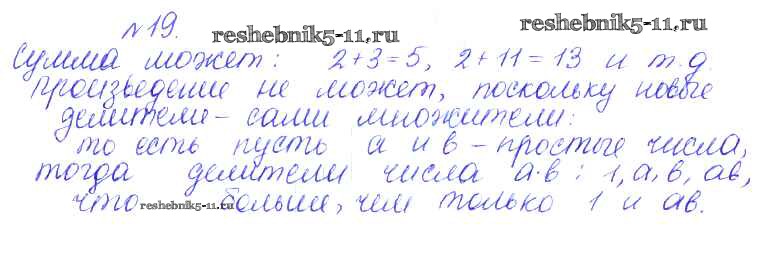 №19.
reshebnik5-11.ru
reshebnik5-11.ru
Сумма может: 2+3=5, 2+11=13 и т.д.
Произведение не может, поскольку новые
делители - сами множители:
то есть пусть a и b - простые числа,
тогда делители числа a·b: 1, a, b, ab,
что больше, чем только 1 и ab.
reshebnik5-11.ru